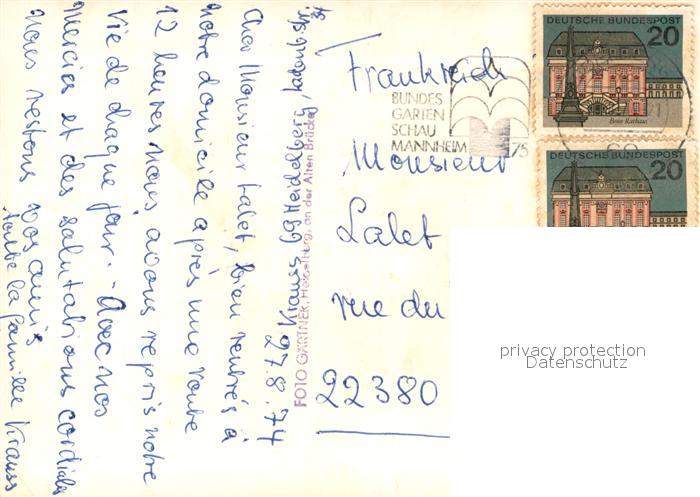 Krauss 69 Heidelberg,
27.8.74
Cher Monsieur Lalet, bien rentrés à
notre domicile après une route
12 heures nous avons repris notre
vie de chaque jour. - Avec nos
mercies et des salutations cordiales
nous restons vos amis
toute la famille Krauss
FOTO GÄRTNER, Heidelberg, an der Alten Brücke
Frankreich
Monsieur
Lalet
rue du
22380
BUNDES
GARTEN
SCHAU
MANNHEIM 75
DEUTSCHE BUNDESPOST
20
Bonn Rathaus
DEUTSCHE BUNDESPOST
20
privacy protection
Datenschutz